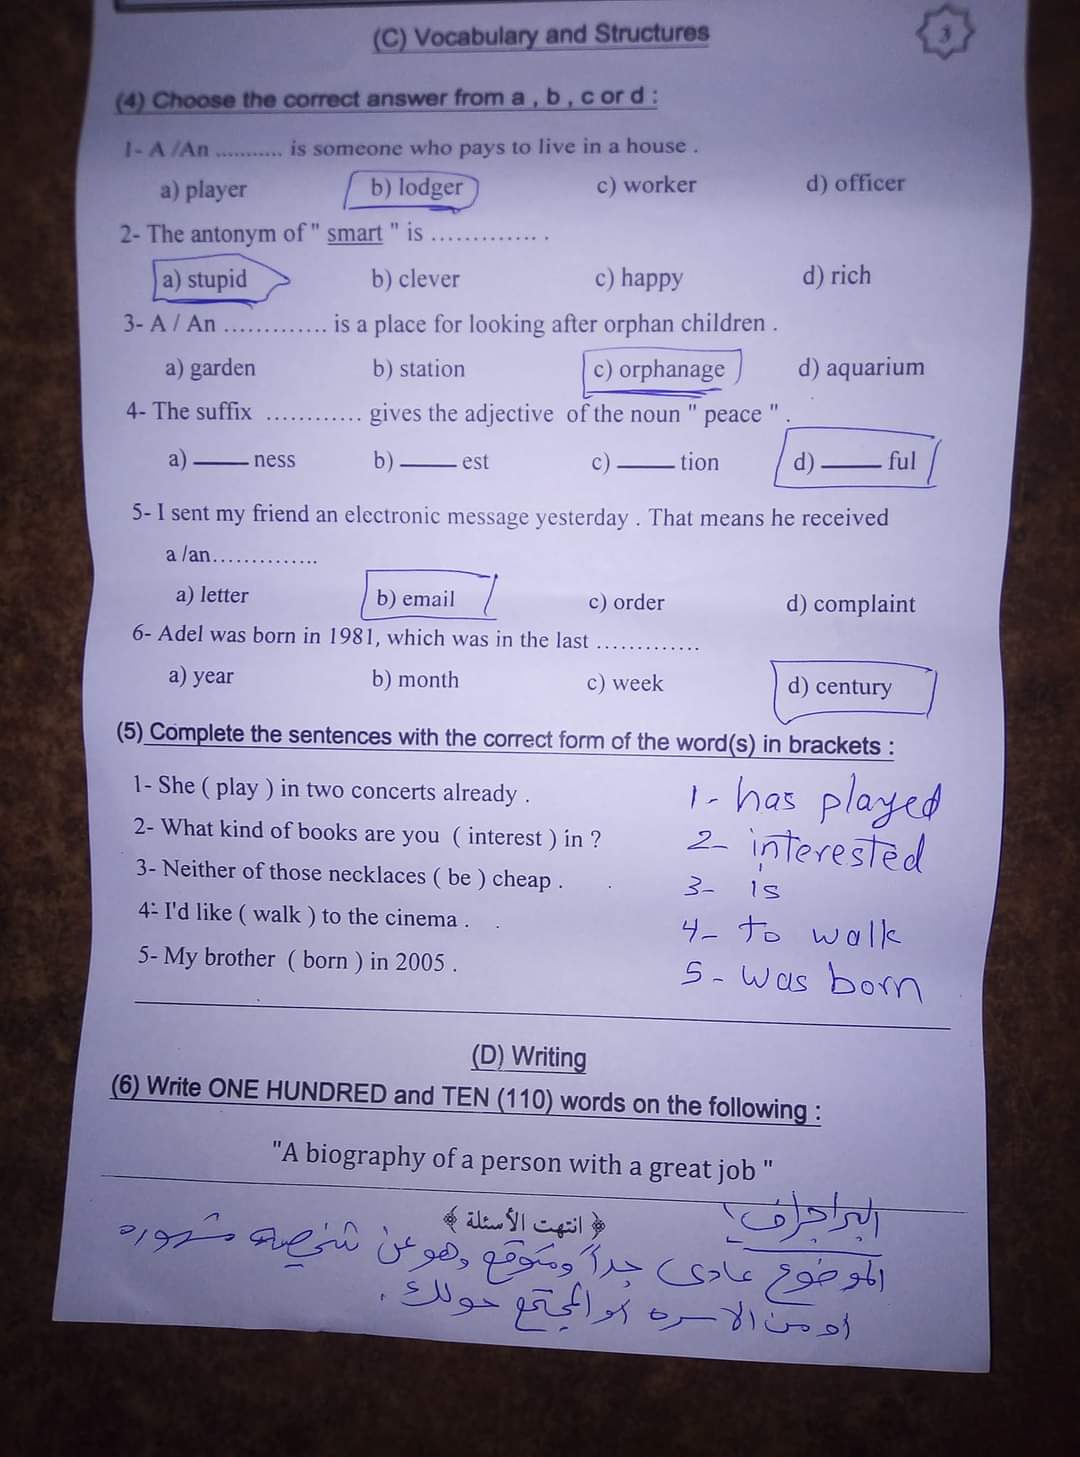 (C) Vocabulary and Structures
3
(4) Choose the correct answer from a , b , c or d :
1- A /An ........... is someone who pays to live in a house .
a) player b) lodger c) worker d) officer
2- The antonym of " smart " is ............. .
a) stupid b) clever c) happy d) rich
3- A / An ............. is a place for looking after orphan children .
a) garden b) station c) orphanage d) aquarium
4- The suffix ............ gives the adjective of the noun " peace " .
a) ____ ness b) ____ est c) ____ tion d) ____ ful
5- I sent my friend an electronic message yesterday . That means he received
a /an..............
a) letter b) email c) order d) complaint
6- Adel was born in 1981, which was in the last .............
a) year b) month c) week d) century
(5) Complete the sentences with the correct form of the word(s) in brackets :
1- She ( play ) in two concerts already . 1- has played
2- What kind of books are you ( interest ) in ? 2- interested
3- Neither of those necklaces ( be ) cheap . 3- is
4- I'd like ( walk ) to the cinema . 4- to walk
5- My brother ( born ) in 2005 . 5- was born
(D) Writing
(6) Write ONE HUNDRED and TEN (110) words on the following :
"A biography of a person with a great job "
انتهت الأسئلة
البراجراف :
الموضوع عادى جداً ومتوقع وهو عن شخصيه مشهوره
او من الاسره او المجتمع حولك .